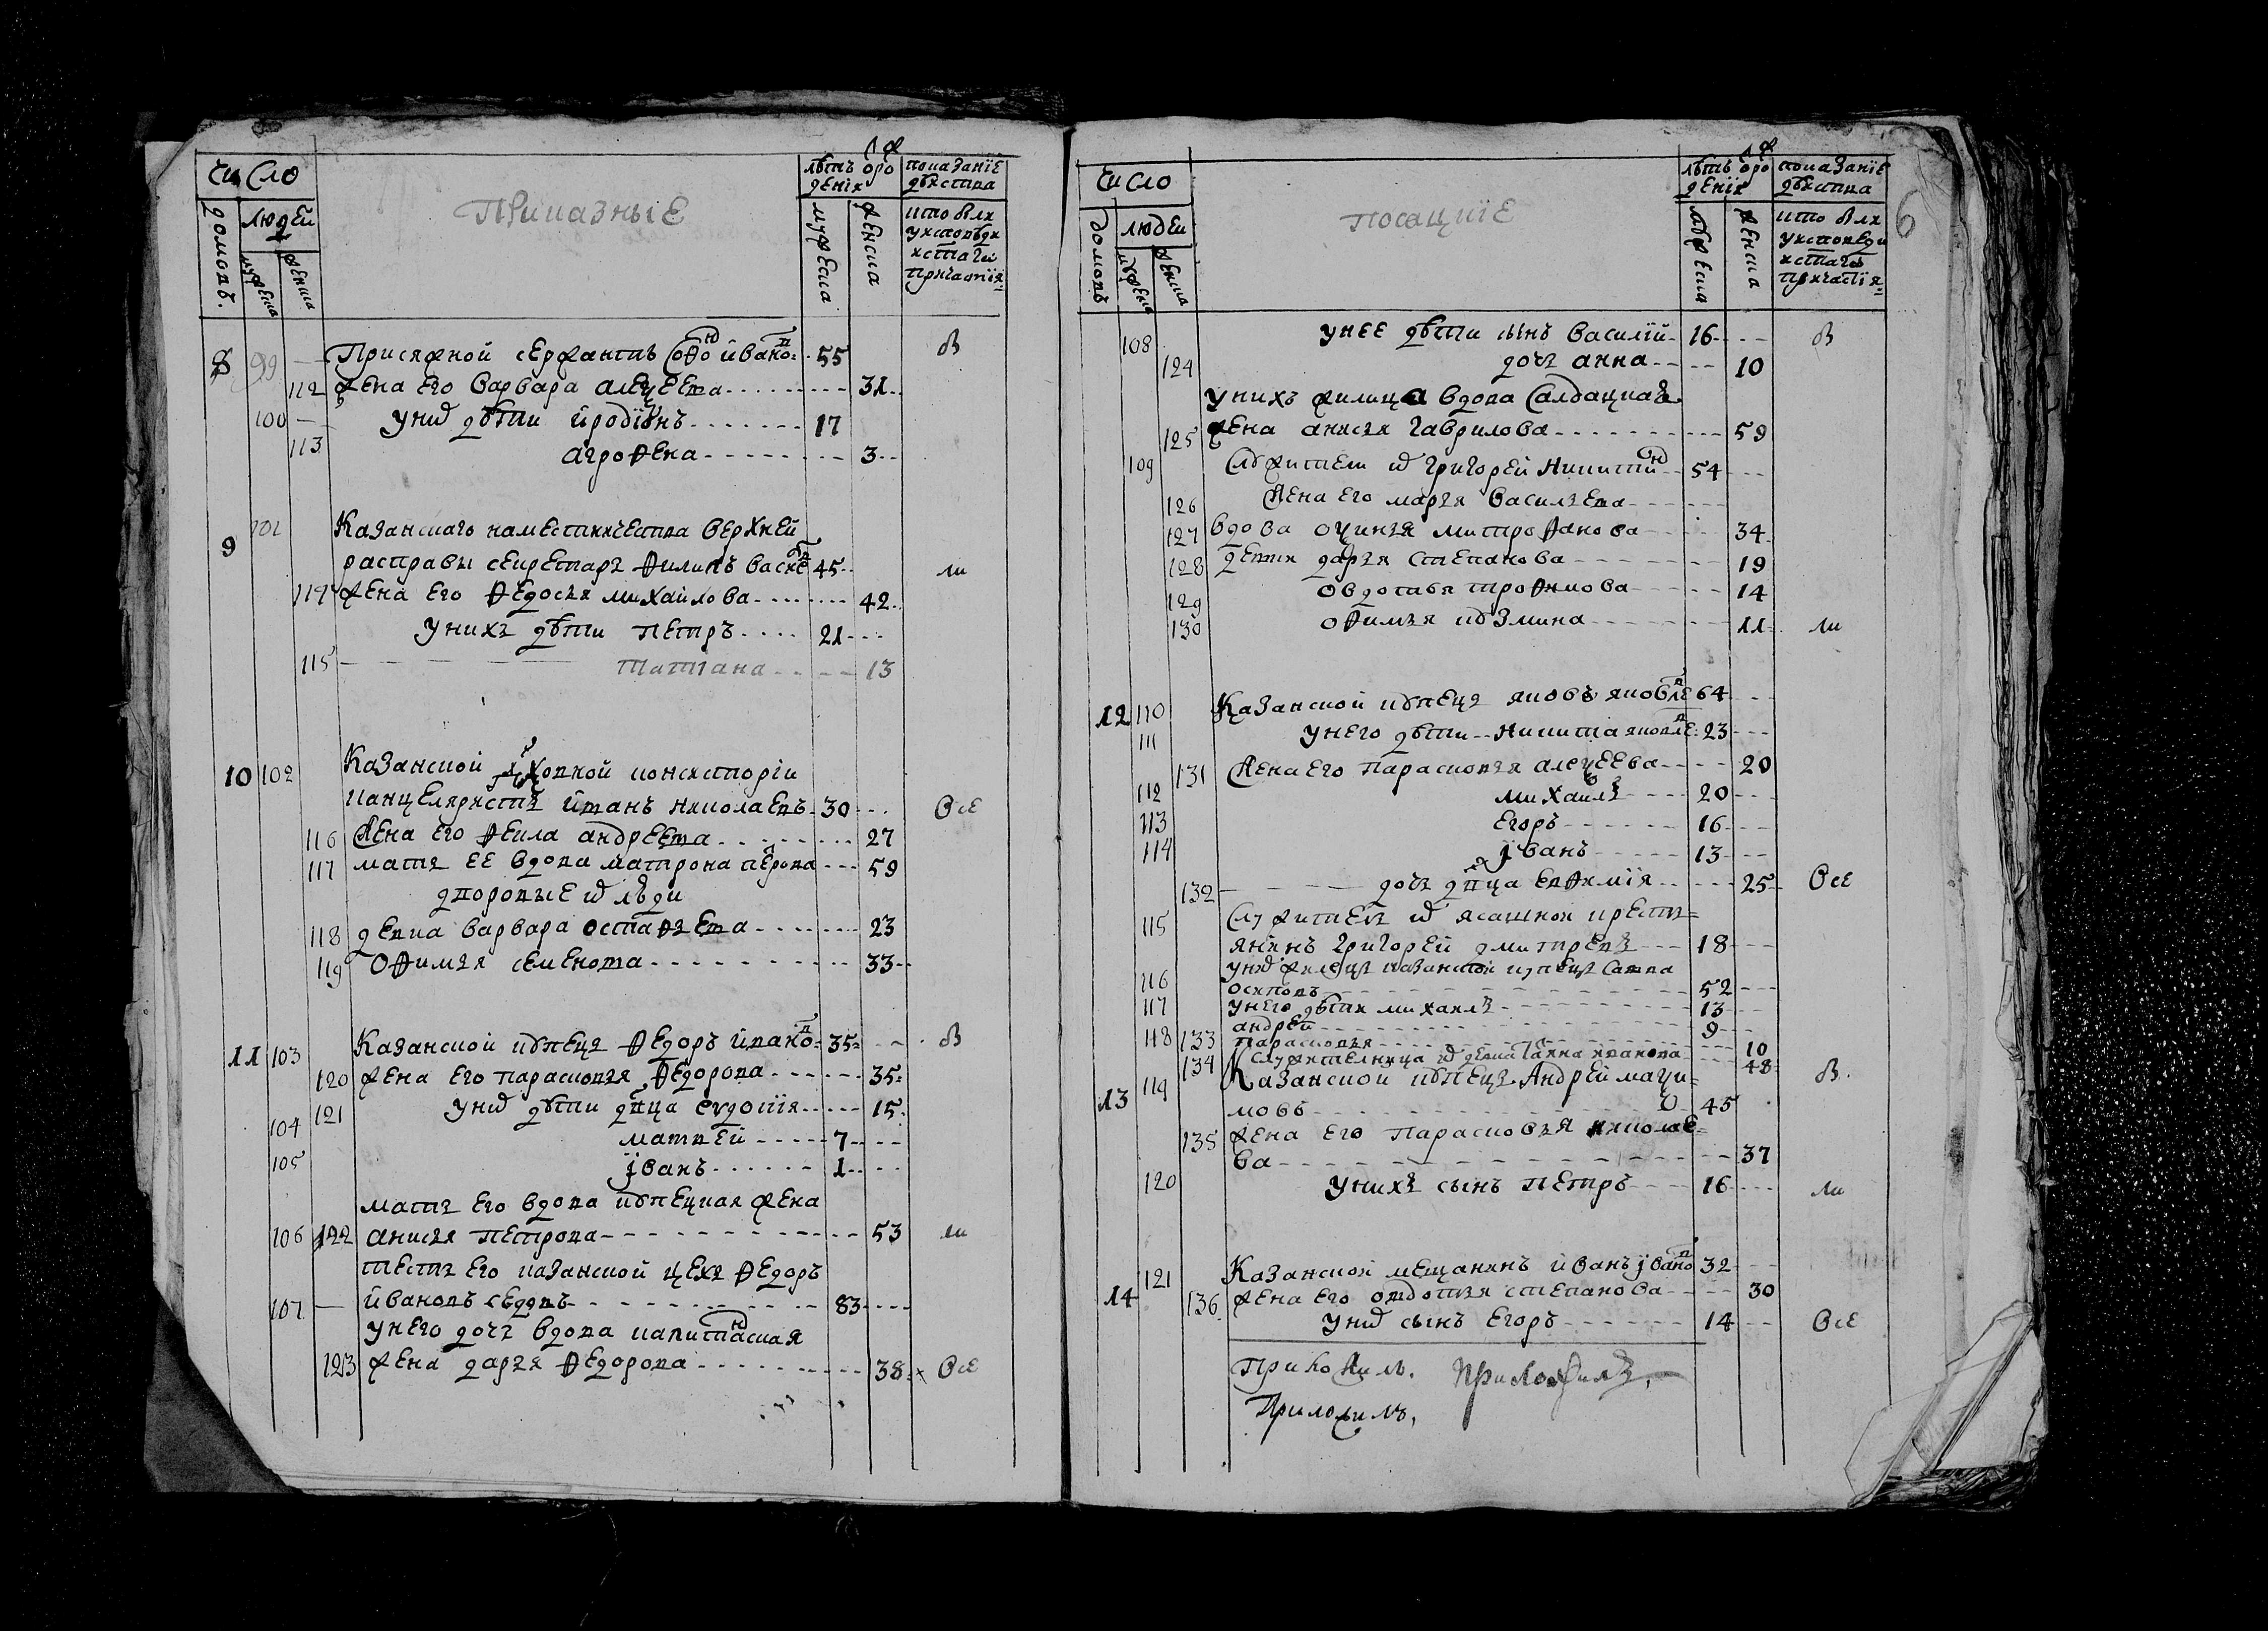 число
лѣтъ от рождения
показание действа
домовъ.
людей
мужеска
женска
Приказные
мужеска
женска
кто был
у исповеди
и с таго
причастия
8 99 Присяжной сержантъ Софонъ Ивановъ 55 в
112 жена его варвара алеѯеева 31
100 у них дѣти иродионъ 17
113 агрофена 3
9 101 Казанскаго наместничества верхней
расправы секретарь филипъ василевъ 45 ли
114 жена его федосья михайлова 42
у нихъ дѣти петръ 21
115 татиана 13
10 102 Казанской духовной консистории
канцеляристъ иванъ николаевъ 30 все
116 жена его фекла андреева 27
117 мать ее вдова матрона петрова 59
дворовые их люди
118 девка варвара остафьева 23
119 офимья семенова 33
11 103 Казанской купецъ федоръ ивановъ 35 в
120 жена его парасковья федорова 35
121 у них дѣти двца евдокїя 15
104 матвей 7
105 іванъ 1
мать его вдова купецкая жена
106 122 анисья петрова 53 ли
тесть его казанской цеха федоръ
107 ивановъ седовъ 83
у него дочь вдова капитанская
123 жена дарья федорова 38 все
число
лѣтъ от рождения
показание действа
домовъ
людеи
мужеска
женска
посацкие
мужеска
женска
кто был
у исповеди
и с таго
причастїя
6
108 у нее дѣти сынъ василий 16 в
124 дочь анна 10
у нихъ жилица вдова салдацкая
125 жена анисья гаврилова 59
109 служители их григорей никитинъ 54
126 жена его марья васильева
127 вдова офинья митрофанова 34
128 девки дарья степанова 19
129 овдотья трофимова 14
130 офимья кузмина 11 ли
12 110 Казанской купецъ яковъ яковлевъ 64
111 у него дѣти никита яковлевъ 23
131 жена его парасковья алеѯеева 20
112 михайлъ 20
113 егоръ 16
114 іванъ 13
132 дочь двца евфимїя 25 все
115 служитель их ясашной кресть=
янинъ григорей дмитревъ 18
116 у них жилецъ казанской купецъ савва
осиповъ 52
117 у него дѣти михаилъ 13
118 андрей 9
133 парасковья 10
134 служителница их девка анна иванова 48
13 119 Казанской купецъ Андрей макси=
мовъ 45 в
135 жена его парасковья николае=
ва 37
120 у нихъ сынъ петръ 16 ли
14 121 Казанской мещанинъ иванъ івановъ 32
136 жена его овдотья степанова 30
у них сынъ егоръ 14 все
Приложилъ. приложилъ,
Приложилъ,